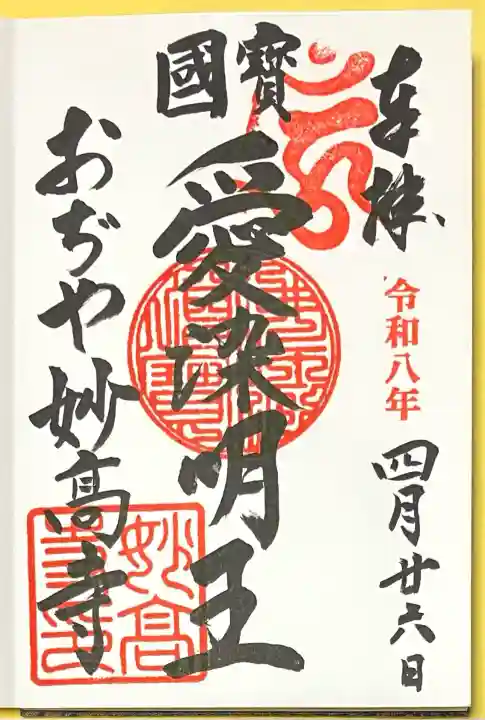 奉拝
令和八年
四月廿六日
國寶
愛染明王
おぢや妙高寺
妙高